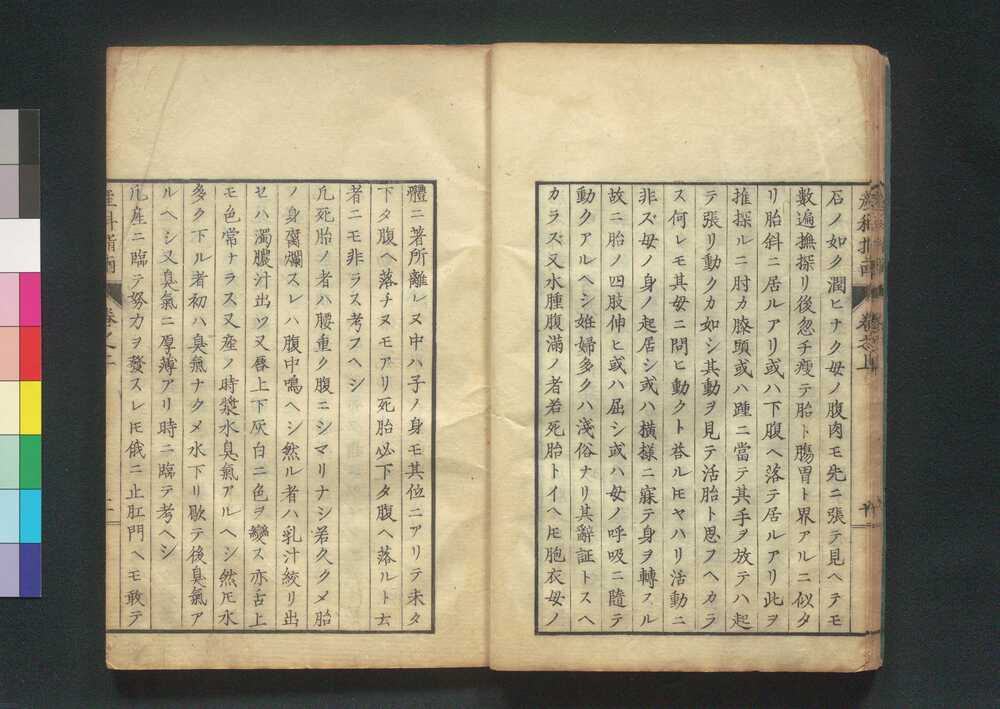 石ノ如ク潤ヒナク母ノ腹肉モ先ニ張テ見ヘテモ
數遍撫探リ後忽チ瘦テ胎ト膓胃ト界アルニ似タ
リ胎斜ニ居ルアリ或ハ下腹ヘ落テ居ルアリ此ヲ
推探ルニ肘カ膝頭或ハ踵ニ當テ其手ヲ放テハ起
テ張リ動クカ如シ其動ヲ見テ活胎ト思フヘカラ
ス何レモ其母ニ問ヒ動クト荅ルヒヤハリ活動ニ
非ズ母ノ身ノ起居シ或ハ横様ニ寐テ身ヲ轉スル
故ニ胎ノ四肢伸ヒ或ハ屈シ或ハ母ノ呼吸ニ隨テ
動クアルヘシ姙婦多クハ淺俗ナリ其辭証トスヘ
カラズ又水腫腹滿ノ者若死胎トイヘ𪜈胞衣母ノ
體ニ著所離レヌ中ハ子ノ身モ其位ニアリテ未タ
下タ腹ヘ落チヌモアリ死胎必下タ腹ヘ落ルト云
者ニモ非ラス考フヘシ
凢死胎ノ者ハ腰重ク腹ニシマリナシ若久クメ胎
ノ身腐爛スレハ腹中鳴ヘシ然ル者ハ乳汁絞リ出
セハ濁膿汁出ツ又唇上下灰白ニ色ヲ變ス亦舌上
モ色常ナラス又産ノ時漿水臭氣アルヘシ然𪜈水
多ク下ル者初ハ臭氣ナクメ水下リ歇テ後臭氣ア
ルヘシ又臭氣ニ厚薄アリ時ニ臨テ考ヘシ
凢産ニ臨テ努力ヲ贅スレ𪜈俄ニ止肛門ヘモ敢テ
産科指南 卷之上